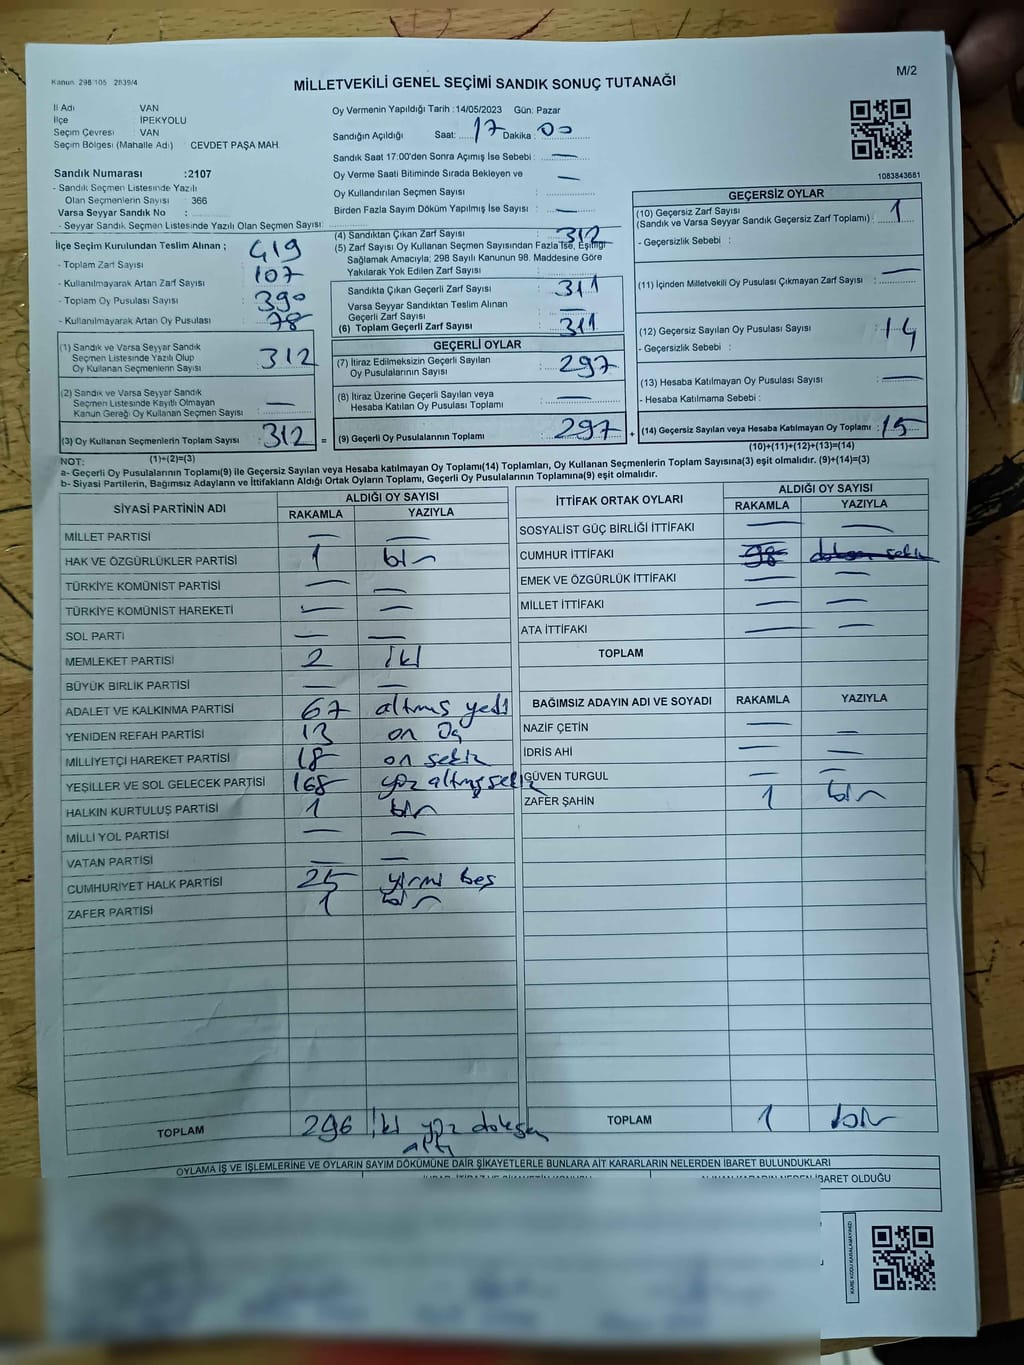 Kanun 298/105 2839/4
M/2
MİLLETVEKİLİ GENEL SEÇİMİ SANDIK SONUÇ TUTANAĞI
İl Adı : VAN
İlçe : İPEKYOLU
Seçim Çevresi : VAN
Seçim Bölgesi (Mahalle Adı) : CEVDET PAŞA MAH.
Sandık Numarası :2107
- Sandık Seçmen Listesinde Yazılı
Olan Seçmenlerin Sayısı : 366
Varsa Seyyar Sandık No :
- Seyyar Sandık Seçmen Listesinde Yazılı Olan Seçmen Sayısı:
Oy Vermenin Yapıldığı Tarih :14/05/2023 Gün: Pazar
Sandığın Açıldığı Saat: 17 Dakika : 00
Sandık Saat 17:00'den Sonra Açımış İse Sebebi : —
Oy Verme Saati Bitiminde Sırada Bekleyen ve : —
Oy Kullandırılan Seçmen Sayısı :
Birden Fazla Sayım Döküm Yapılmış İse Sayısı : —
1083843681
İlçe Seçim Kurulundan Teslim Alınan ;
- Toplam Zarf Sayısı : 419
- Kullanılmayarak Artan Zarf Sayısı : 107
- Toplam Oy Pusulası Sayısı : 390
- Kullanılmayarak Artan Oy Pusulası : 78
(1) Sandık ve Varsa Seyyar Sandık
Seçmen Listesinde Yazılı Olup
Oy Kullanan Seçmenlerin Sayısı : 312
(2) Sandık ve Varsa Seyyar Sandık
Seçmen Listesinde Kayıtlı Olmayan
Kanun Gereği Oy Kullanan Seçmen Sayısı : —
(3) Oy Kullanan Seçmenlerin Toplam Sayısı : 312 =
(1)+(2)=(3)
(4) Sandıktan Çıkan Zarf Sayısı : 312
(5) Zarf Sayısı Oy Kullanan Seçmen Sayısından Fazla İse, Eşitliği
Sağlamak Amacıyla; 298 Sayılı Kanunun 98. Maddesine Göre
Yakılarak Yok Edilen Zarf Sayısı :
Sandıkta Çıkan Geçerli Zarf Sayısı : 311
Varsa Seyyar Sandıktan Teslim Alınan
Geçerli Zarf Sayısı : —
(6) Toplam Geçerli Zarf Sayısı : 311
GEÇERLİ OYLAR
(7) İtiraz Edilmeksizin Geçerli Sayılan
Oy Pusulalarının Sayısı : 297
(8) İtiraz Üzerine Geçerli Sayılan veya
Hesaba Katılan Oy Pusulası Toplamı : —
(9) Geçerli Oy Pusulalarının Toplamı : 297 +
GEÇERSİZ OYLAR
(10) Geçersiz Zarf Sayısı
(Sandık ve Varsa Seyyar Sandık Geçersiz Zarf Toplamı) : 1
- Geçersizlik Sebebi :
(11) İçinden Milletvekili Oy Pusulası Çıkmayan Zarf Sayısı : —
(12) Geçersiz Sayılan Oy Pusulası Sayısı : 14
- Geçersizlik Sebebi :
(13) Hesaba Katılmayan Oy Pusulası Sayısı : —
- Hesaba Katılmama Sebebi :
(14) Geçersiz Sayılan veya Hesaba Katılmayan Oy Toplamı : 15
(10)+(11)+(12)+(13)=(14)
NOT:
a- Geçerli Oy Pusulalarının Toplamı(9) ile Geçersiz Sayılan veya Hesaba katılmayan Oy Toplamı(14) Toplamları, Oy Kullanan Seçmenlerin Toplam Sayısına(3) eşit olmalıdır. (9)+(14)=(3)
b- Siyasi Partilerin, Bağımsız Adayların ve İttifakların Aldığı Ortak Oyların Toplamı, Geçerli Oy Pusulalarının Toplamına(9) eşit olmalıdır.
SİYASİ PARTİNİN ADI
ALDIĞI OY SAYISI
RAKAMLA YAZIYLA
MİLLET PARTİSİ — —
HAK VE ÖZGÜRLÜKLER PARTİSİ 1 bir
TÜRKİYE KOMÜNİST PARTİSİ — —
TÜRKİYE KOMÜNİST HAREKETİ — —
SOL PARTİ — —
MEMLEKET PARTİSİ 2 iki
BÜYÜK BİRLİK PARTİSİ — —
ADALET VE KALKINMA PARTİSİ 67 altmış yedi
YENİDEN REFAH PARTİSİ 13 on üç
MİLLİYETÇİ HAREKET PARTİSİ 18 on sekiz
YEŞİLLER VE SOL GELECEK PARTİSİ 168 yüz altmış sekiz
HALKIN KURTULUŞ PARTİSİ 1 bir
MİLLİ YOL PARTİSİ — —
VATAN PARTİSİ — —
CUMHURİYET HALK PARTİSİ 25 yirmi beş
ZAFER PARTİSİ 1 bir
TOPLAM 296 iki yüz doksan
altı
İTTİFAK ORTAK OYLARI
ALDIĞI OY SAYISI
RAKAMLA YAZIYLA
SOSYALİST GÜÇ BİRLİĞİ İTTİFAKI — —
CUMHUR İTTİFAKI 98 doksan sekiz
EMEK VE ÖZGÜRLÜK İTTİFAKI — —
MİLLET İTTİFAKI — —
ATA İTTİFAKI — —
TOPLAM
BAĞIMSIZ ADAYIN ADI VE SOYADI RAKAMLA YAZIYLA
NAZİF ÇETİN — —
İDRİS AHİ — —
GÜVEN TURGUL — —
ZAFER ŞAHİN 1 bir
TOPLAM 1 bir
OYLAMA İŞ VE İŞLEMLERİNE VE OYLARIN SAYIM DÖKÜMÜNE DAİR ŞİKAYETLERLE BUNLARA AİT KARARLARIN NELERDEN İBARET BULUNDUKLARI
İBARET OLDUĞU
KARE KODU KARALAMAYINIZ!